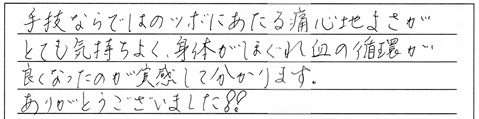 手技ならではのツボにあたる痛心地よさが
とても気持ちよく、身体がほぐれ血の循環が
良くなったのが実感して分かります。
ありがとうございました!!